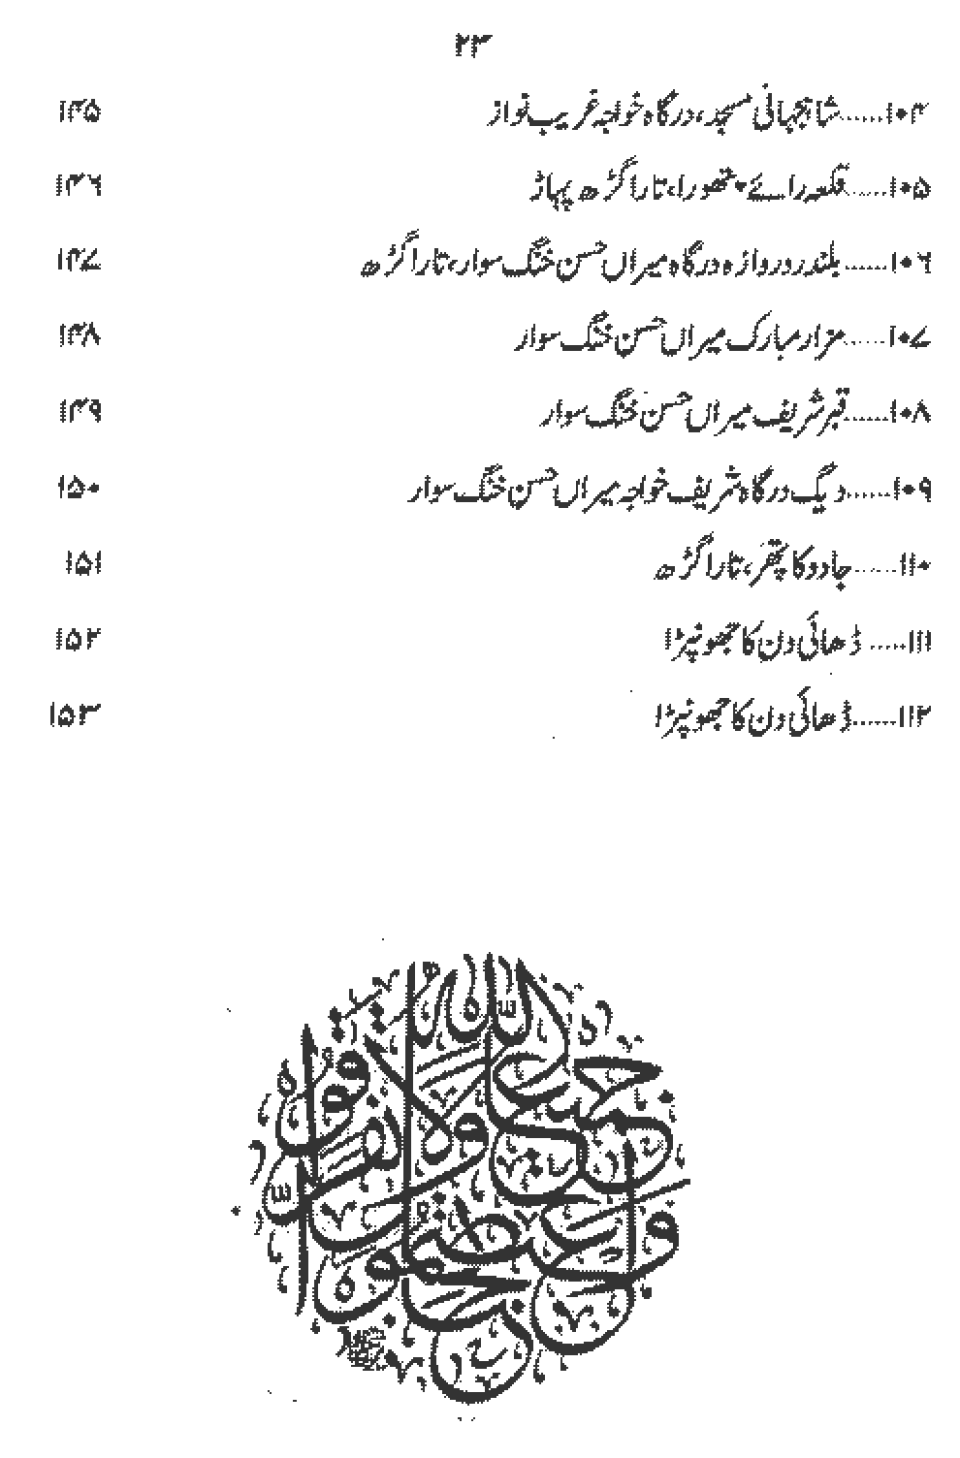 ۲۳
۱۰۴......شاہجہانی مسجد، درگاہ خواجہ غریب نواز ۱۴۵
۱۰۵......قلعہ رائے پتھورا، تارا گڑھ پہاڑ ۱۴۶
۱۰۶......بلند دروازہ درگاہ میراں حسن خنگ سوار، تارا گڑھ ۱۴۷
۱۰۷......مزار مبارک میراں حسن خنگ سوار ۱۴۸
۱۰۸......قبر شریف میراں حسن خنگ سوار ۱۴۹
۱۰۹......دیگ درگاہ شریف خواجہ میراں حسن خنگ سوار ۱۵۰
۱۱۰......جادو کا پتھر، تارا گڑھ ۱۵۱
۱۱۱......ڈھائی دن کا جھونپڑا ۱۵۲
۱۱۲......ڈھائی دن کا جھونپڑا ۱۵۳